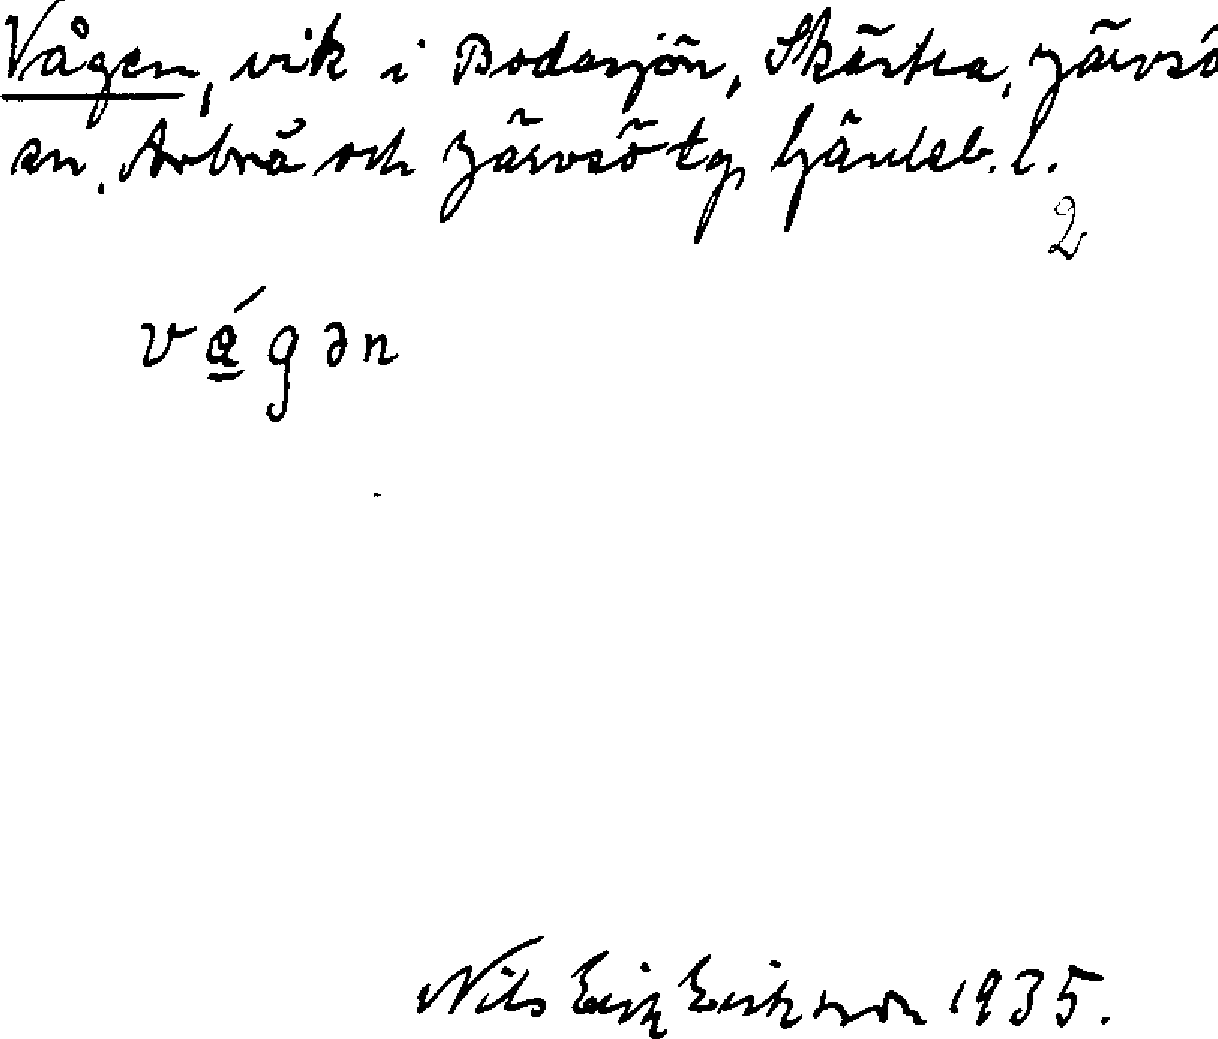 Vågen, vik i Bodasjön, Skästra, Järvsö
sn. Arbrå och Järvsö tg, Gävleb. l.
2
vágən
Nils Erik Eriksson 1935.